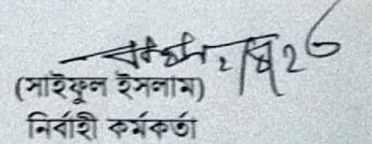 (সাইফুল ইসলাম)
নির্বাহী কর্মকর্তা